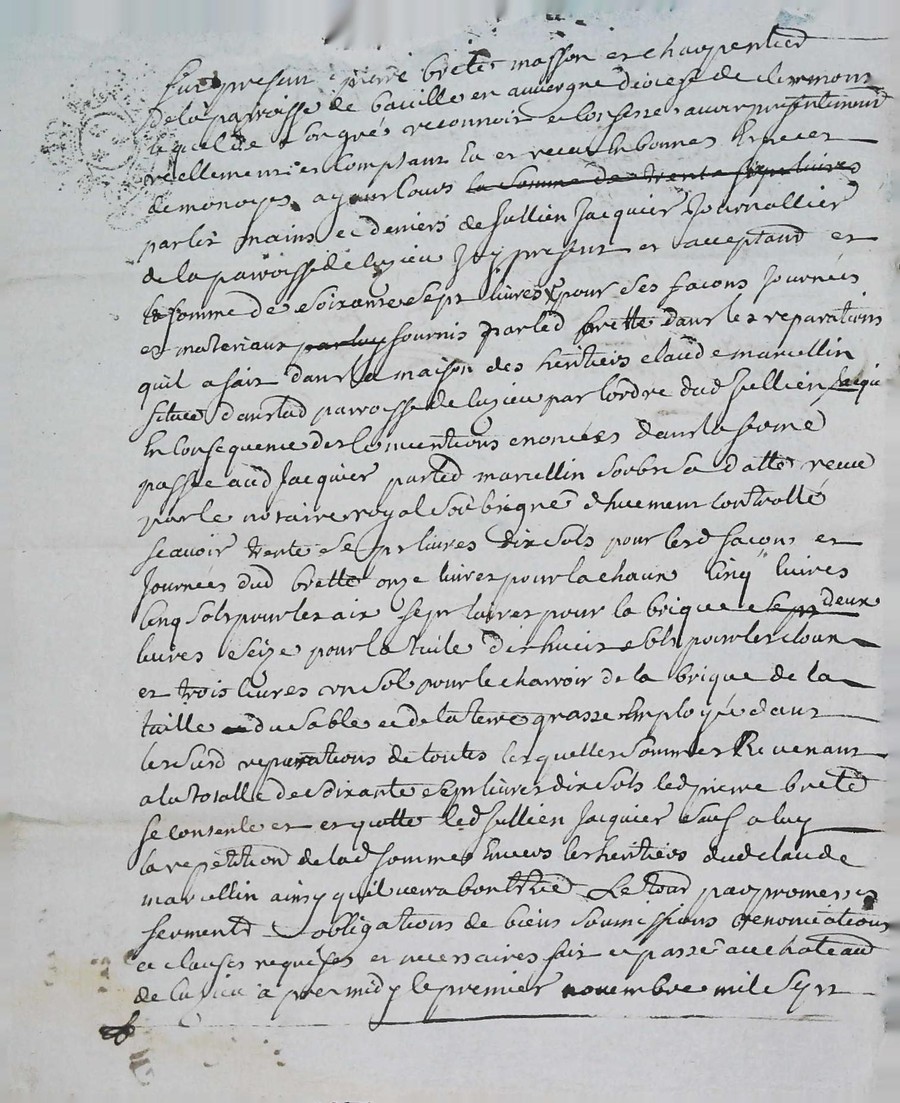 fut present pierre brette masson et charpentier
de la parroisse de bauille en auvergne diocese de clermont
lequel de son gré reconnoit et confesse avoir presentement
reellement et comptant eu et receu en bonnes especes
de monoyes ayant cours la somme de trente sept livres
par les mains et deniers de Jullien Jacquier Journallier
de la parroisse de luzieu Icy present et acceptant et
la somme de soixante sept livres pour ses facons Journées
et materiaux par luy fournis par led brette dans les reparations
quil a fait dans la maison des heritiers claude marcellin
situee dans lad parroisse de luzieu par lordre dud Jullien Jacqu
En consequence des conventions enoncées dans la ferme
passée aud Jacquier par led marcellin soubs sa datte receue
par le notaire royal soubsigné dhuement controllé
scavoir trente sept livres dix sols pour lesd facons et
Journées dud brette onze livres pour la chaux cinq livres
cinq sols pour les aix sept livres pour la brique sept deux
livres seize pour la tuile dixhuict sols pour les cloux
et trois livres un sol pour le charroir de la brique de la
tuille du sable et de la terre grasse Employée dans
lessusd reparations de toutes lesquelles sommes Revenant
a la totalle de soixante sept livres dix sols led pierre brette
se contente et en quitte led Jullien Jacquier sauf a luy
la repetition de lad somme Envers les heritiers dud claude
marcellin ainsy quil verra bon Etre Le tout par promesses
serments obligations de biens soumissions renonciations
et clauses requises et necessaires fait et passé au chateau
de luzieu apres midy le premier novembre mil sept